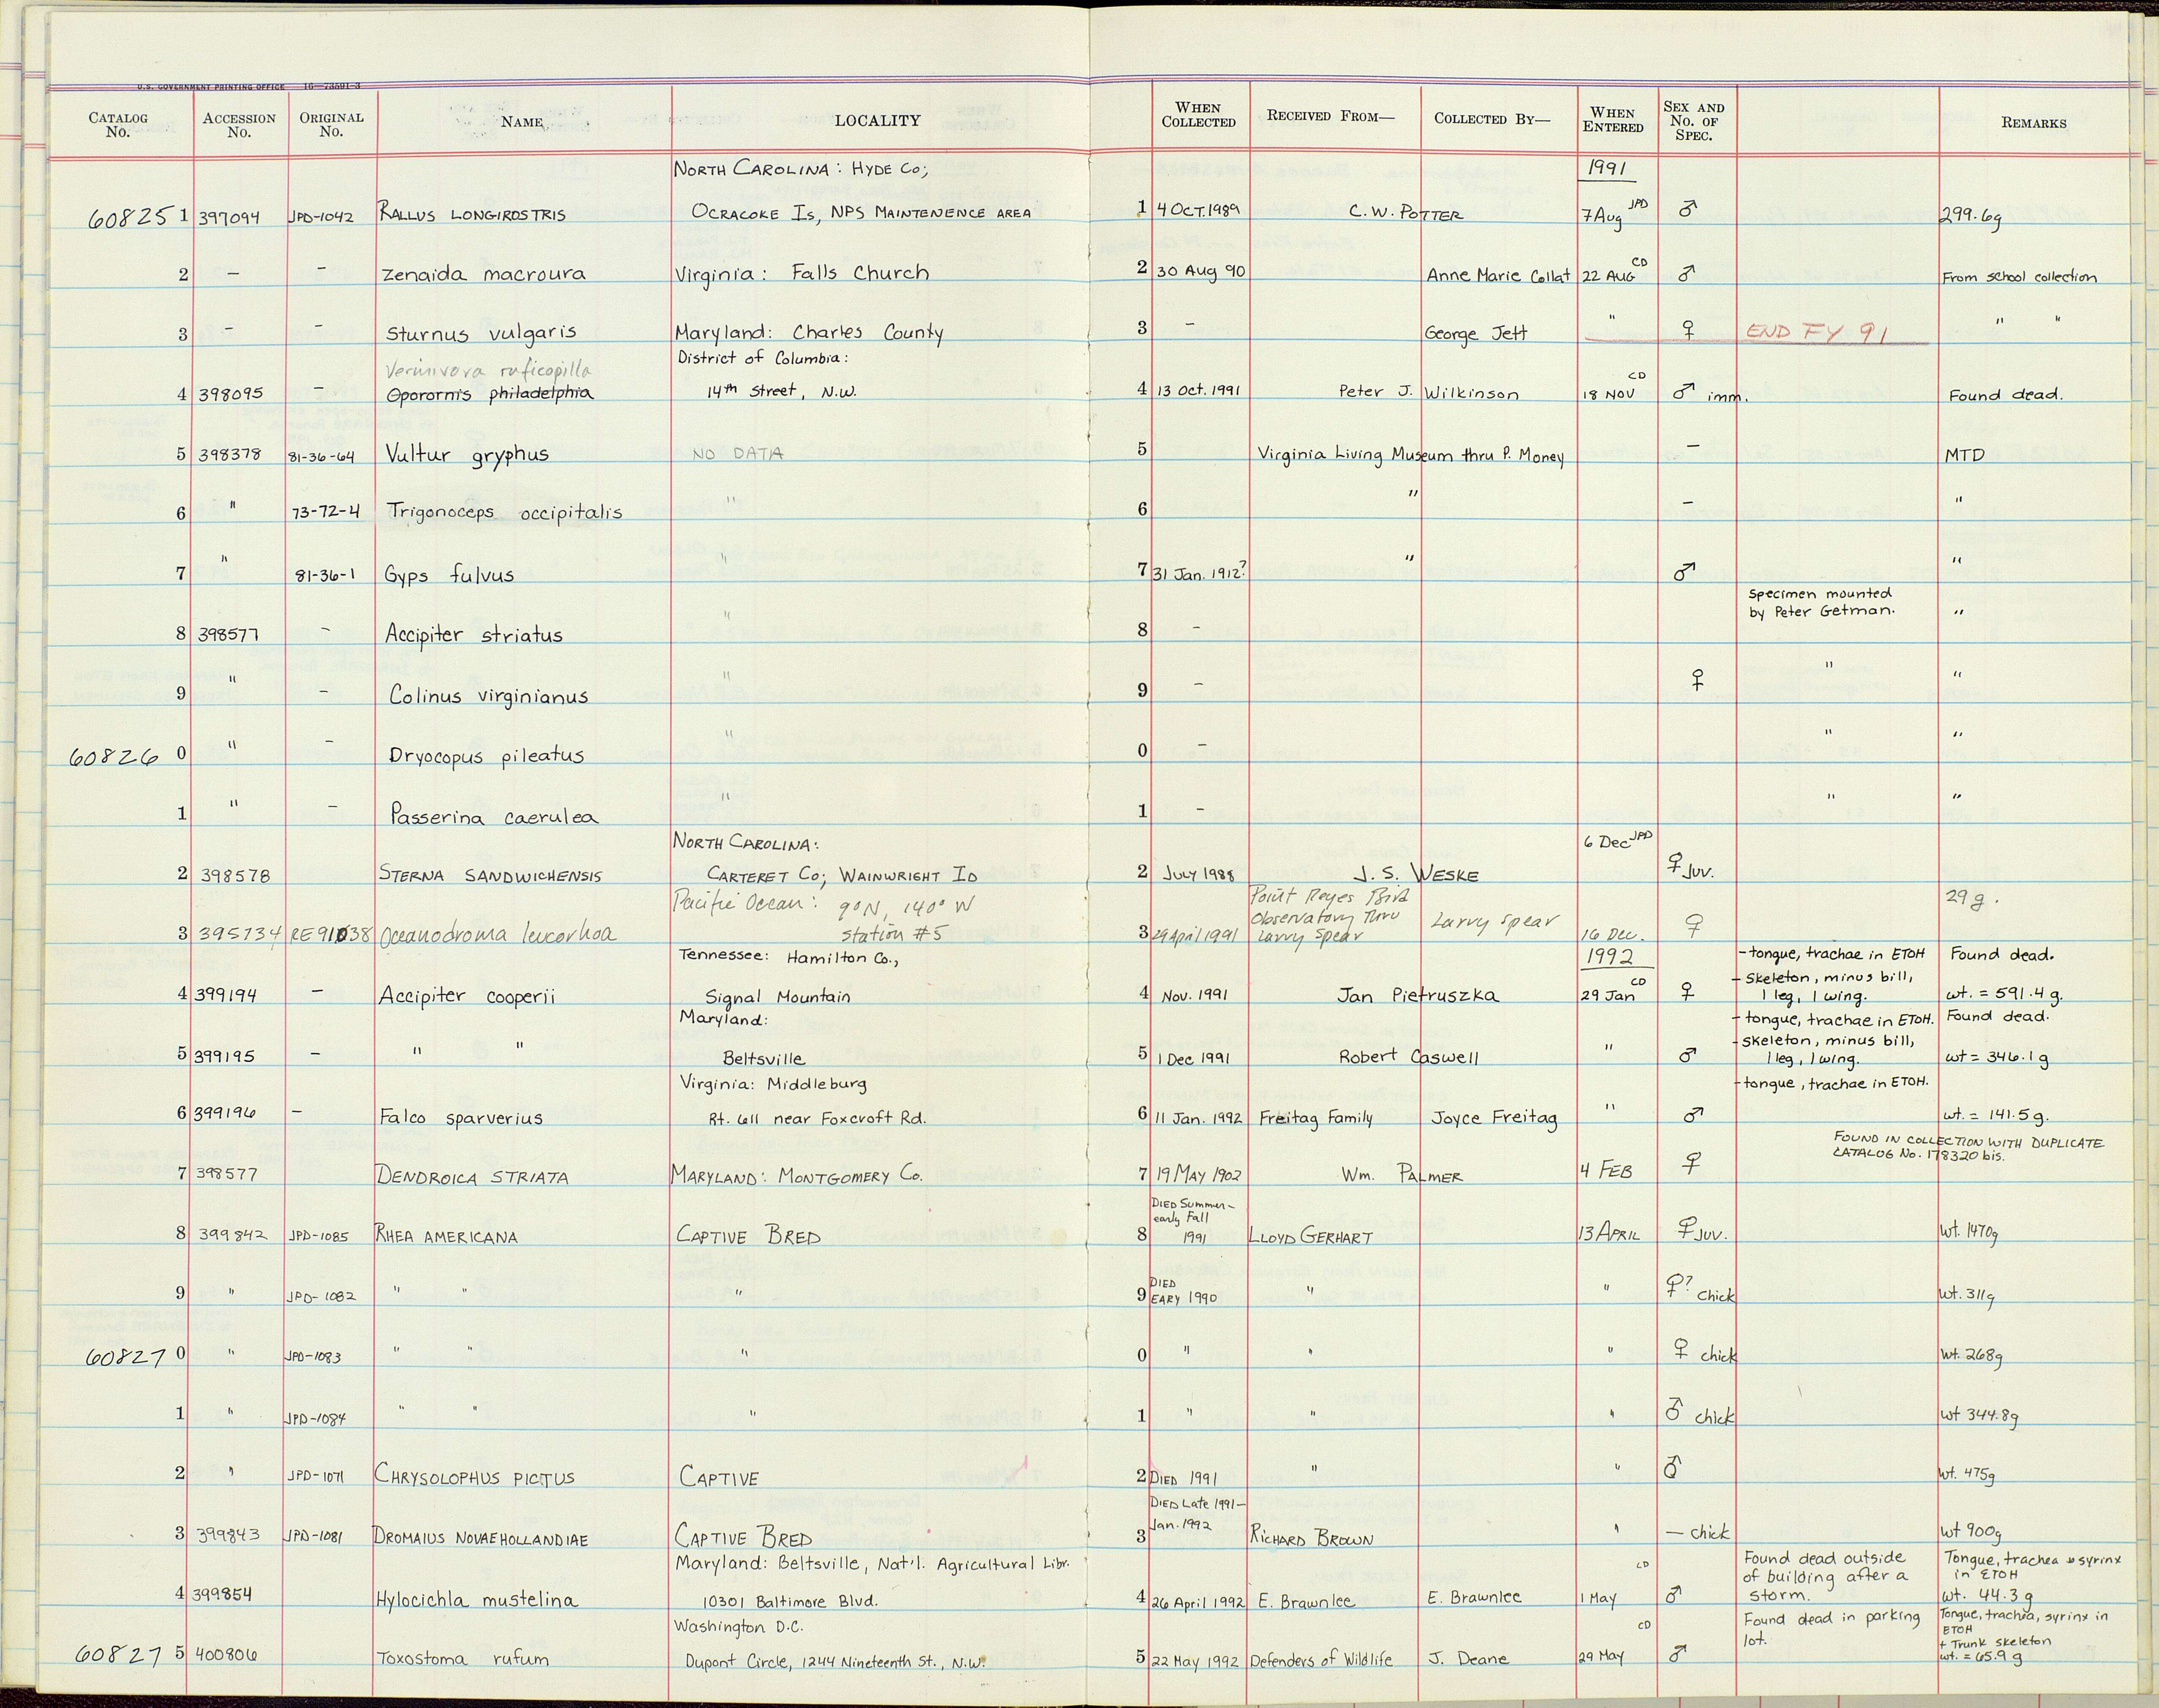 U.S. GOVERNMENT PRINTING OFFICE 16—73591-3
CATALOG No. ACCESSION No. ORIGINAL No. NAME LOCALITY WHEN COLLECTED RECEIVED FROM— COLLECTED BY— WHEN ENTERED SEX AND No. OF SPEC. REMARKS
NORTH CAROLINA: HYDE Co; 1991
60825 1 397094 JPD-1042 RALLUS LONGIROSTRIS OCRACOKE IS, NPS MAINTENENCE AREA 1 4 OCT. 1989 C.W. POTTER 7 Aug JPD ♂ 299.6g
2 – – Zenaida macroura Virginia: Falls Church 2 30 Aug 90 Anne Marie Collat 22 AUG CD ♂ From school collection
3 – – Sturnus vulgaris Maryland: Charles County 3 – George Jett " ♀ END FY 91 " "
Vermivora ruficapilla District of Columbia:
4 398095 – Oporornis philadelphia 14th Street, N.W. 4 13 Oct. 1991 Peter J. Wilkinson 18 NOV CD ♂ imm. Found dead.
5 398378 81-36-64 Vultur gryphus NO DATA 5 Virginia Living Museum thru P. Money – MTD
6 " 73-72-4 Trigonoceps occipitalis " 6 " – "
7 " 81-36-1 Gyps fulvus " 7 31 Jan. 1912? " ♂ "
Specimen mounted
by Peter Getman.
8 398577 – Accipiter striatus " 8 – "
9 " – Colinus virginianus " 9 – ♀ " "
60826 0 " – Dryocopus pileatus " 0 – " "
1 " – Passerina caerulea " 1 – " "
NORTH CAROLINA: 6 Dec JPD
2 398578 STERNA SANDWICHENSIS CARTERET Co; WAINWRIGHT ID 2 JULY 1988 J. S. WESKE ♀ Juv.
Pacific Ocean: 9°N, 140° W Point Reyes Bird 29 g.
Observatory Thru
3 395734 RE91038 Oceanodroma leucorhoa station #5 3 29 April 1991 Larry Spear Larry Spear 16 Dec. ♀
Tennessee: Hamilton Co., 1992 -tongue, trachae in ETOH Found dead.
-Skeleton, minus bill,
4 399194 – Accipiter cooperii Signal Mountain 4 Nov. 1991 Jan Pietruszka 29 Jan CD ♀ 1 leg, 1 wing. wt. = 591.4 g.
Maryland: -tongue, trachae in ETOH. Found dead.
-skeleton, minus bill,
5 399195 – " " Beltsville 5 1 Dec 1991 Robert Caswell " ♂ 1 leg, 1 wing. wt = 346.1 g
Virginia: Middleburg -tongue, trachae in ETOH.
6 399196 – Falco sparverius Rt. 611 near Foxcroft Rd. 6 11 Jan. 1992 Freitag Family Joyce Freitag " ♂ wt. = 141.5 g.
FOUND IN COLLECTION WITH DUPLICATE
CATALOG No. 178320 bis.
7 398577 DENDROICA STRIATA MARYLAND: MONTGOMERY Co. 7 19 MAY 1902 Wm. PALMER 4 FEB ♀
DIED Summer-
early Fall
8 399842 JPD-1085 RHEA AMERICANA CAPTIVE BRED 8 1991 LLOYD GERHART 13 APRIL ♀ Juv. wt. 1470g
DIED
9 " JPD-1082 " " " 9 EARY 1990 " " ♀? chick wt. 311g
60827 0 " JPD-1083 " " " 0 " " " ♀ chick wt. 268g
1 " JPD-1084 " " " 1 " " " ♂ chick wt 344.8g
2 " JPD-1071 CHRYSOLOPHUS PICTUS CAPTIVE 2 DIED 1991 " " ♂ wt. 475g
DIED Late 1991-
Jan. 1992
3 399843 JPD-1081 DROMAIUS NOVAEHOLLANDIAE CAPTIVE BRED 3 RICHARD BROWN " – chick wt 900g
Maryland: Beltsville, Nat'l. Agricultural Libr. CD Found dead outside Tongue, trachea & syrinx
of building after a in ETOH
4 399854 Hylocichla mustelina 10301 Baltimore Blvd. 4 26 April 1992 E. Brawnlee E. Brawnlee 1 May ♂ storm. wt. 44.3 g
Washington D.C. CD Found dead in parking Tongue, trachea, syrinx in
lot. ETOH
+ Trunk skeleton
60827 5 400806 Toxostoma rufum Dupont Circle, 1244 Nineteenth St., N.W. 5 22 May 1992 Defenders of Wildlife J. Deane 29 May ♂ wt. = 65.9 g